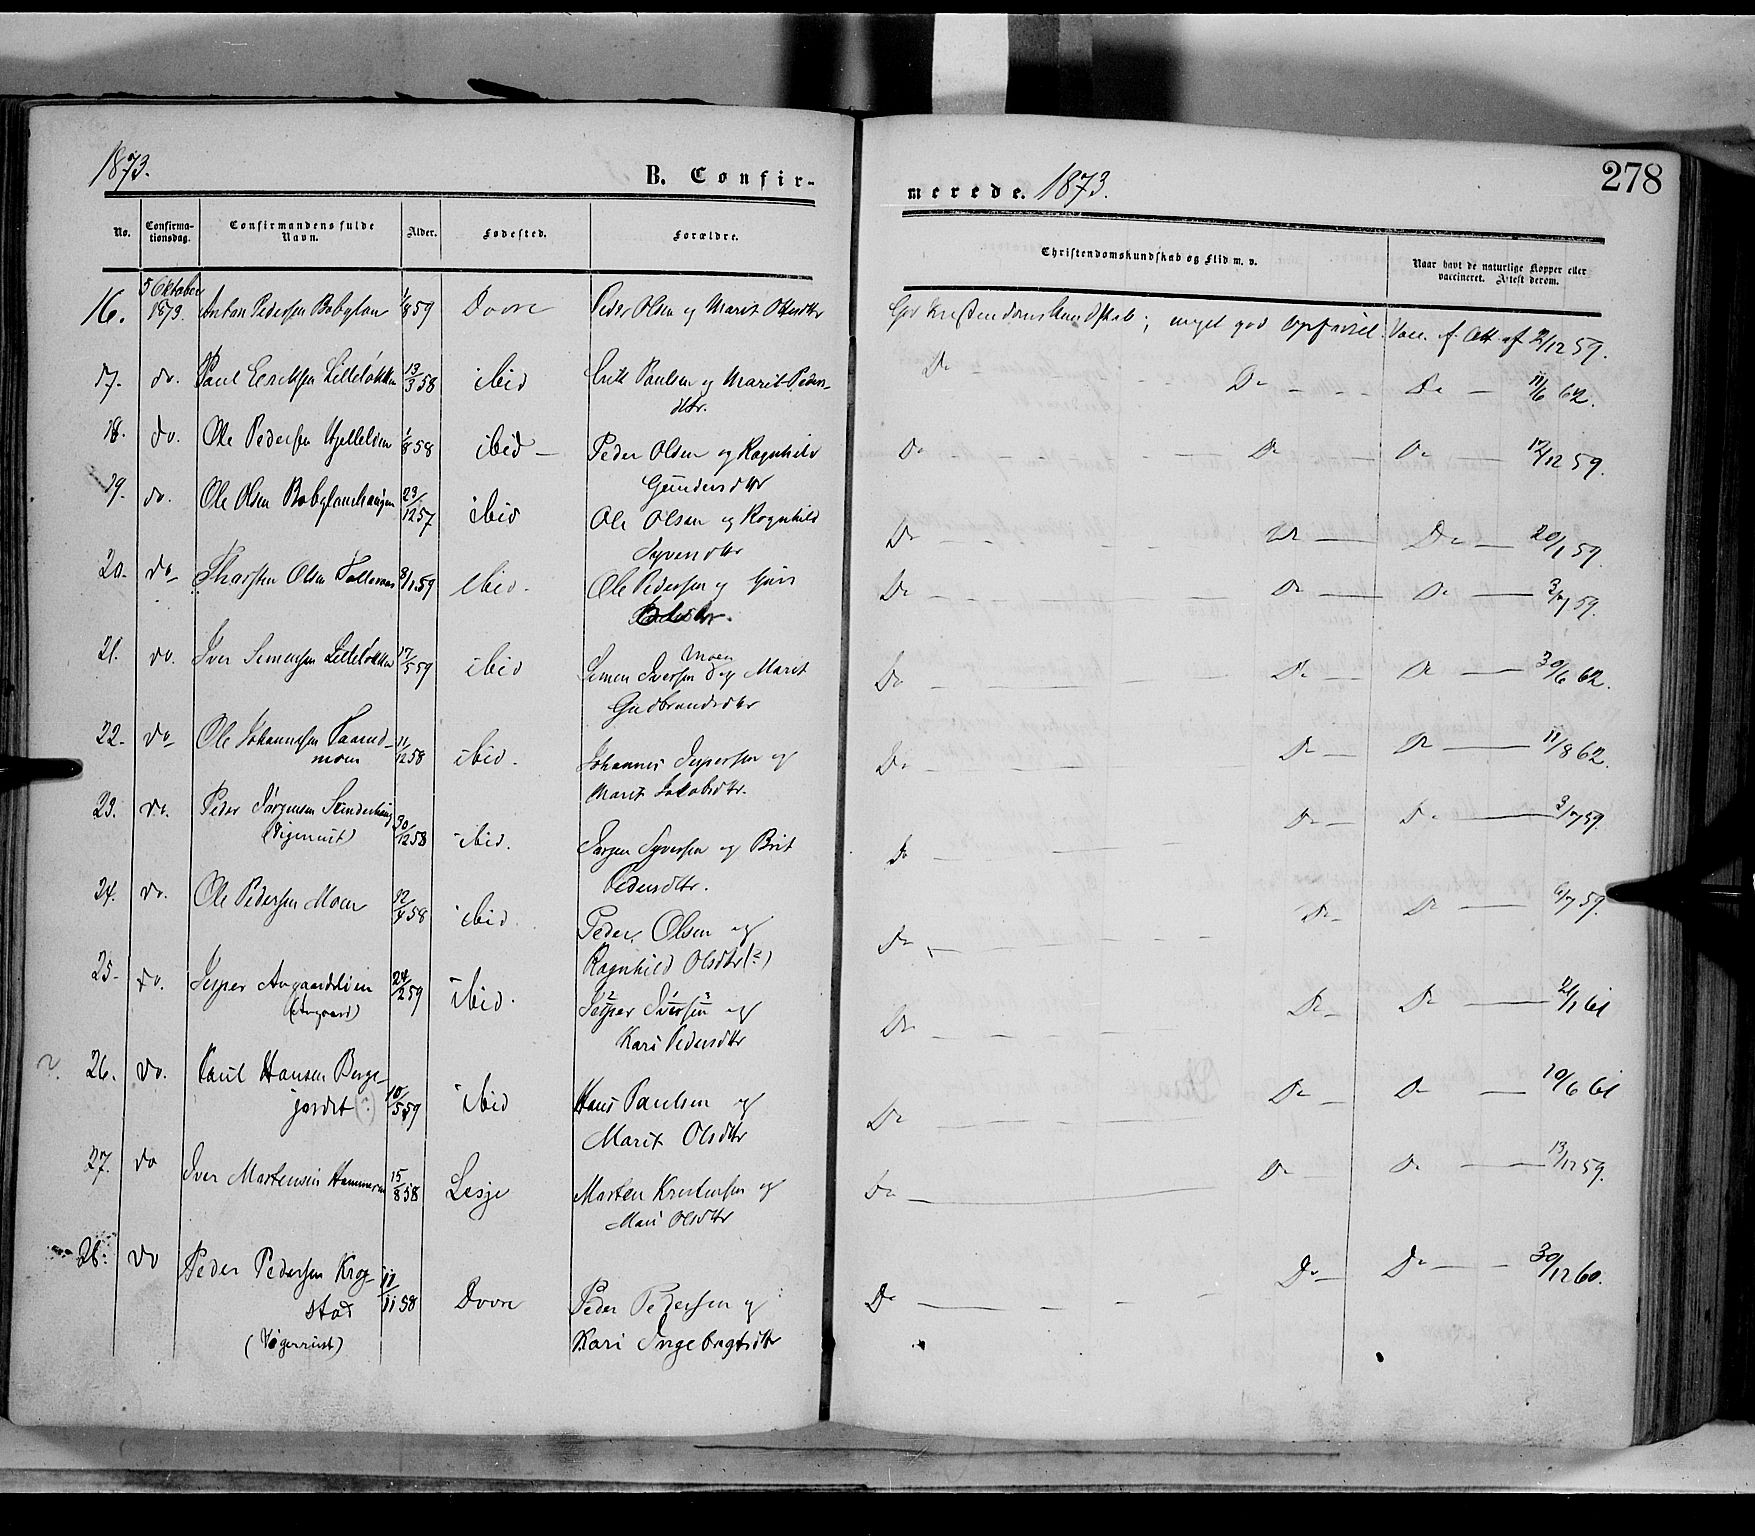 1873.
B. Confir-
merede. 1873.
278
No.
Confirma-
tionsdag.
Confirmandens fulde
Navn.
Alder.
Fødested.
Forældre.
Christendomskundskab og Flid m. v.
Naar havt de naturlige Kopper eller
vaccineret. Attest derom.
5 Oktober
16. 1873. Anton Pedersen Bobylon 1/8 59 Dovre Peder Olsen og Marit Olsdtr God Kristendomskundskab; meget god Opførsel. Vacc. f. Att. af 12/12 59.
17. do. Paul Eriksen Lilleløkken 13/3 58 ibid Erik Paulsen og Marit Peders- Do Do Do 11/6 62.
dtr.
18. do. Ole Pedersen 1/8 58 ibid Peder Olsen og Ragnhild Do Do Do 12/12 59.
19. do. Ole Olsen 23/12 57 ibid Ole Olsen og Ragnhild Do Do Do 20/1 59.
20. do Olsen ibid. Ole Pedersen og Do Do Do 3/7 59.
21. do. Iver Simensen Lilleløkken 17/5 59 ibid Simen Iversen Moen og Marit Do Do Do 30/6 62.
Gudbrandsdtr
22. do Ole Johannesen 11/12 58 ibid. Johannes Jespersen og Do Do Do 11/8 62.
moen Marit Jakobsdtr.
23. do. Peder Jørgensen 30/12 58 ibid. Jørgen Syversen og Brit Do Do Do 3/7 59.
Pedersdtr.
24. do. Ole Pedersen Moen 12/4 58 ibid. Peder Olsen og Do Do Do 6/7 59.
Ragnhild Olsdtr (?)
25. do. Jesper 24/2 59 ibid. Jesper Iversen og Do Do Do 21/1 61
Kari Pedersdtr
26. do. Paul Hansen Berge- 10/5 59 ibid Hans Paulsen og Do Do Do 10/6 61
jordet Marit Olsdtr
27. do Iver Mortensen Hammeren 15/8 58 Lesje Morten og Do Do Do 13/12 59.
Mari Olsdtr
28. do Peder Pedersen Krog- 11/11 58 Dovre Peder Pedersen og Do Do Do 30/12 60.
stad Kari Ingebrigtsdtr